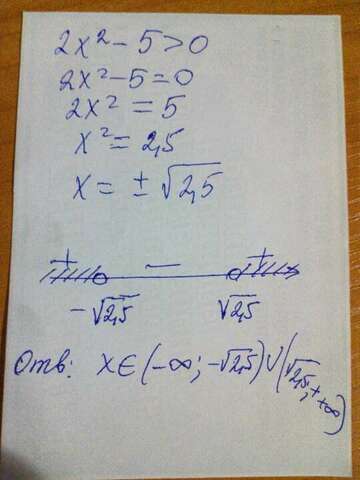 2x² - 5 > 0
2x² - 5 = 0
2x² = 5
x² = 2,5
x = ± √2,5
+ — +
-√2,5 √2,5
Отв: x ∈ (-∞; -√2,5) ∪ (√2,5; +∞)